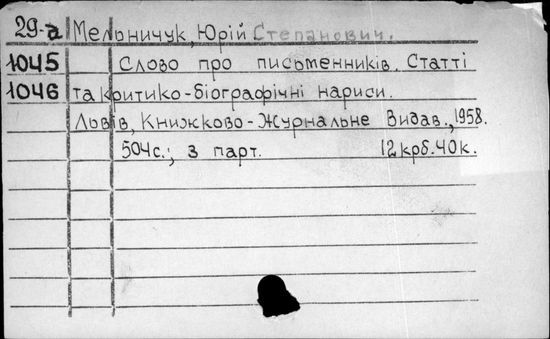 29-а Мельничук, Юрій Степанович.
1045 Слово про письменників. Статті
1046 та критико-біографічні нариси.
Львів, Книжково-Журнальне Видав., 1958.
504с.; з парт. 12 крб. 40 к.